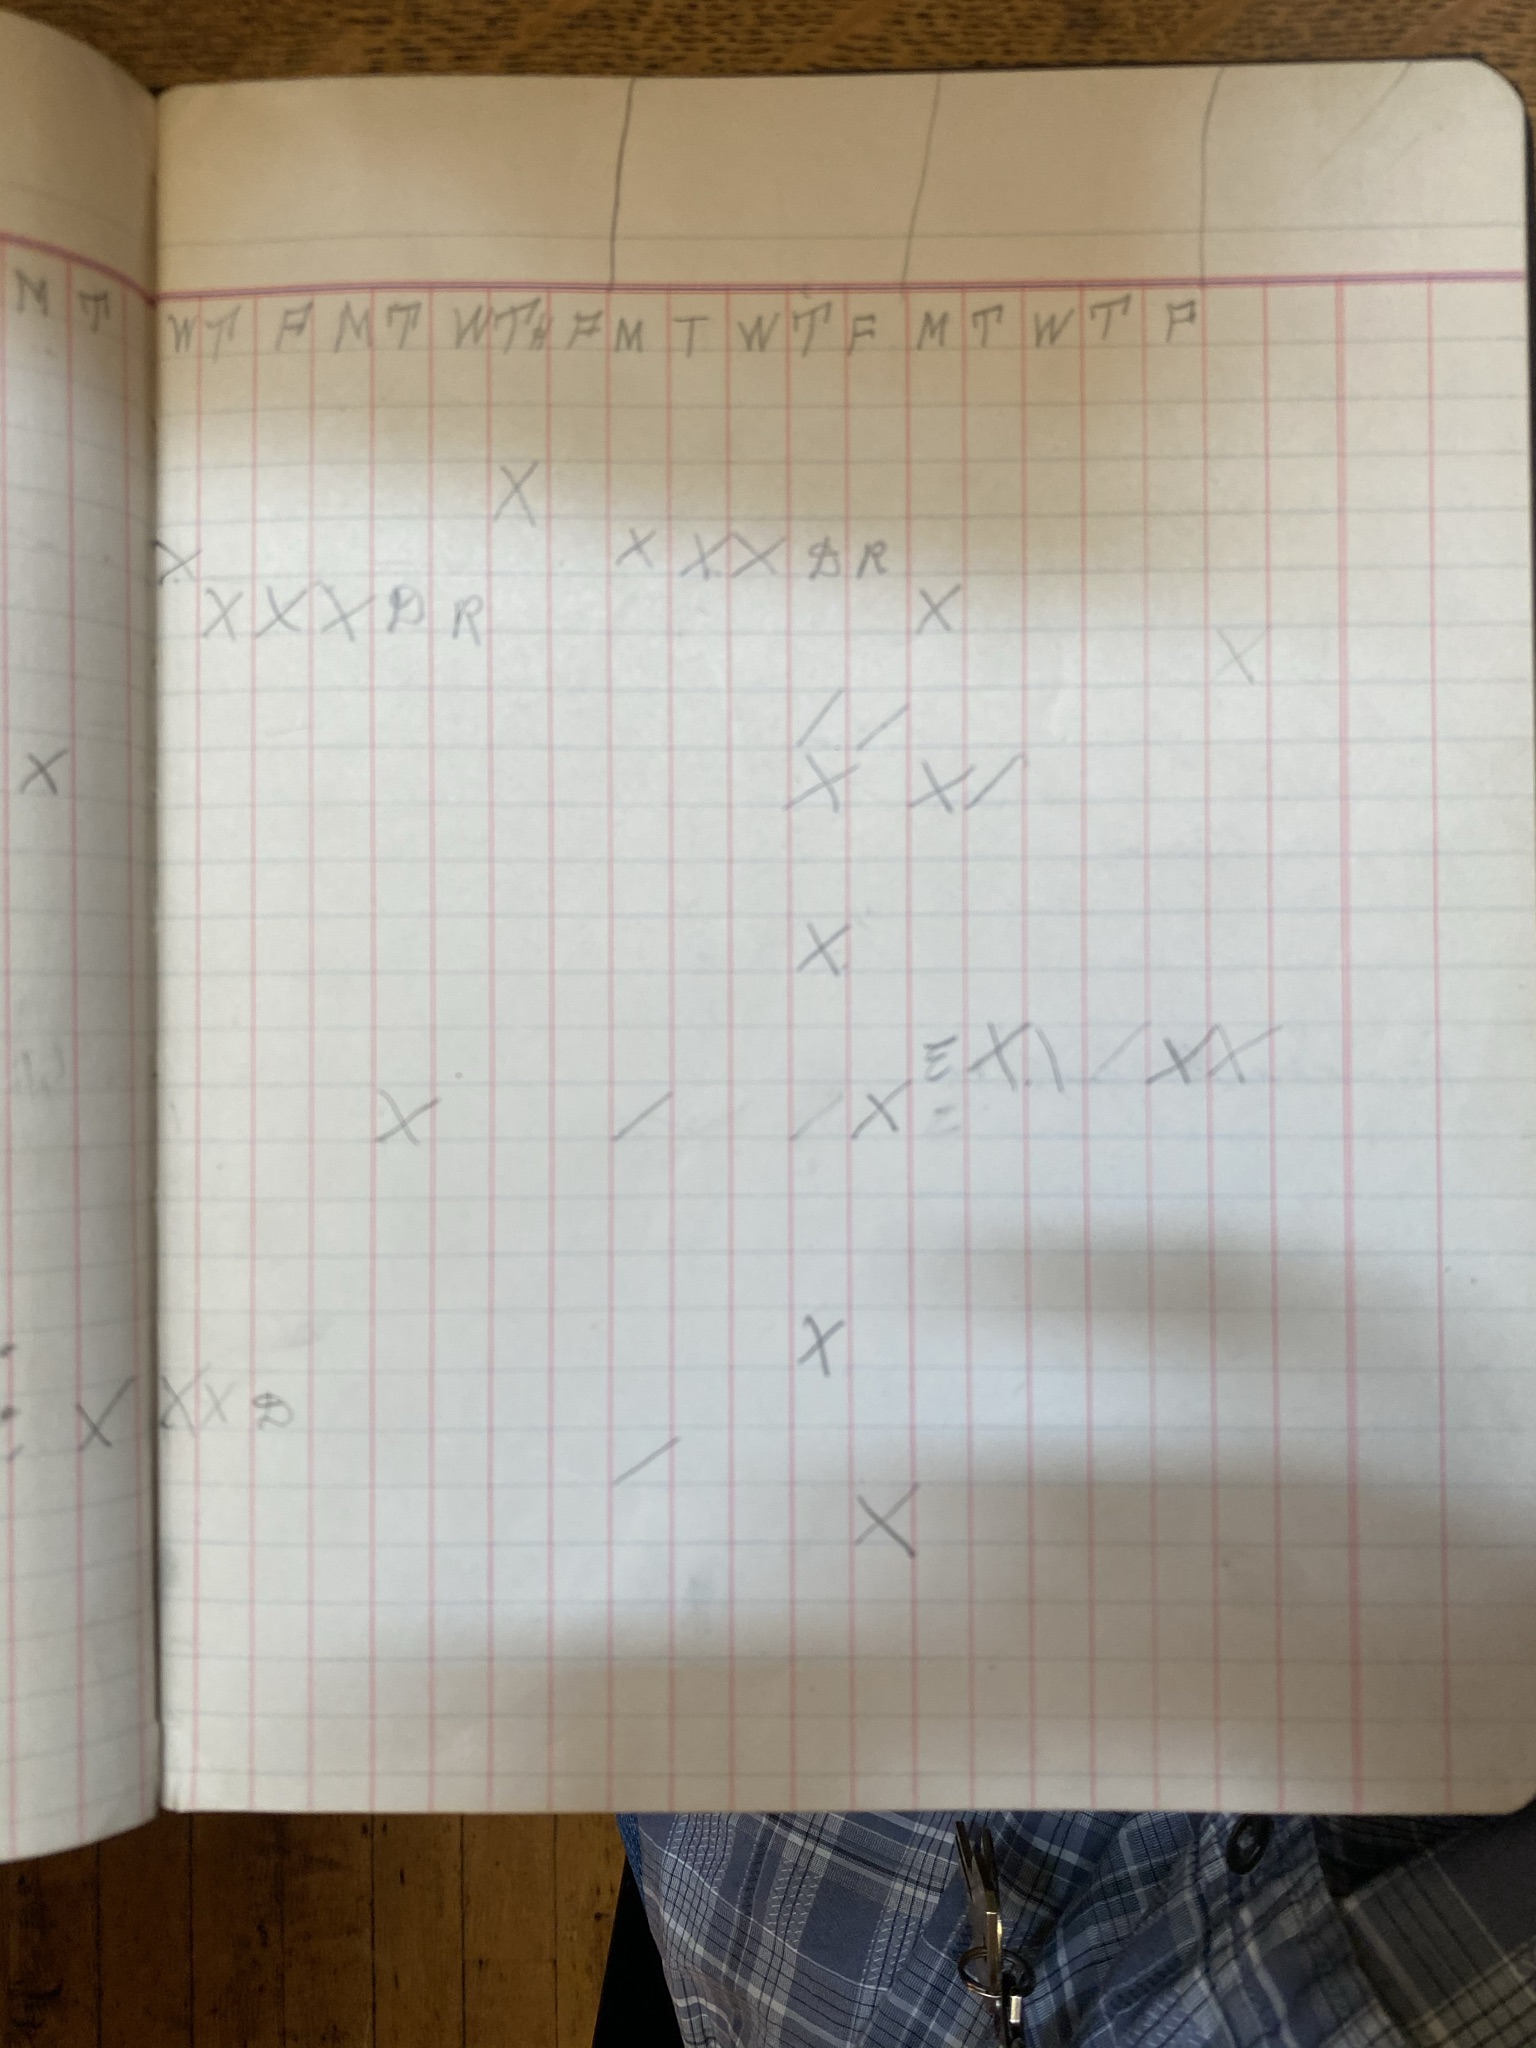 M T W T F M T W TH F M T W T F M T W T F
X
X X X X D R
X X X D R X
X
/ /
X X X /
X
E X \ / X X
X / / X =
X
X X X D
/
X